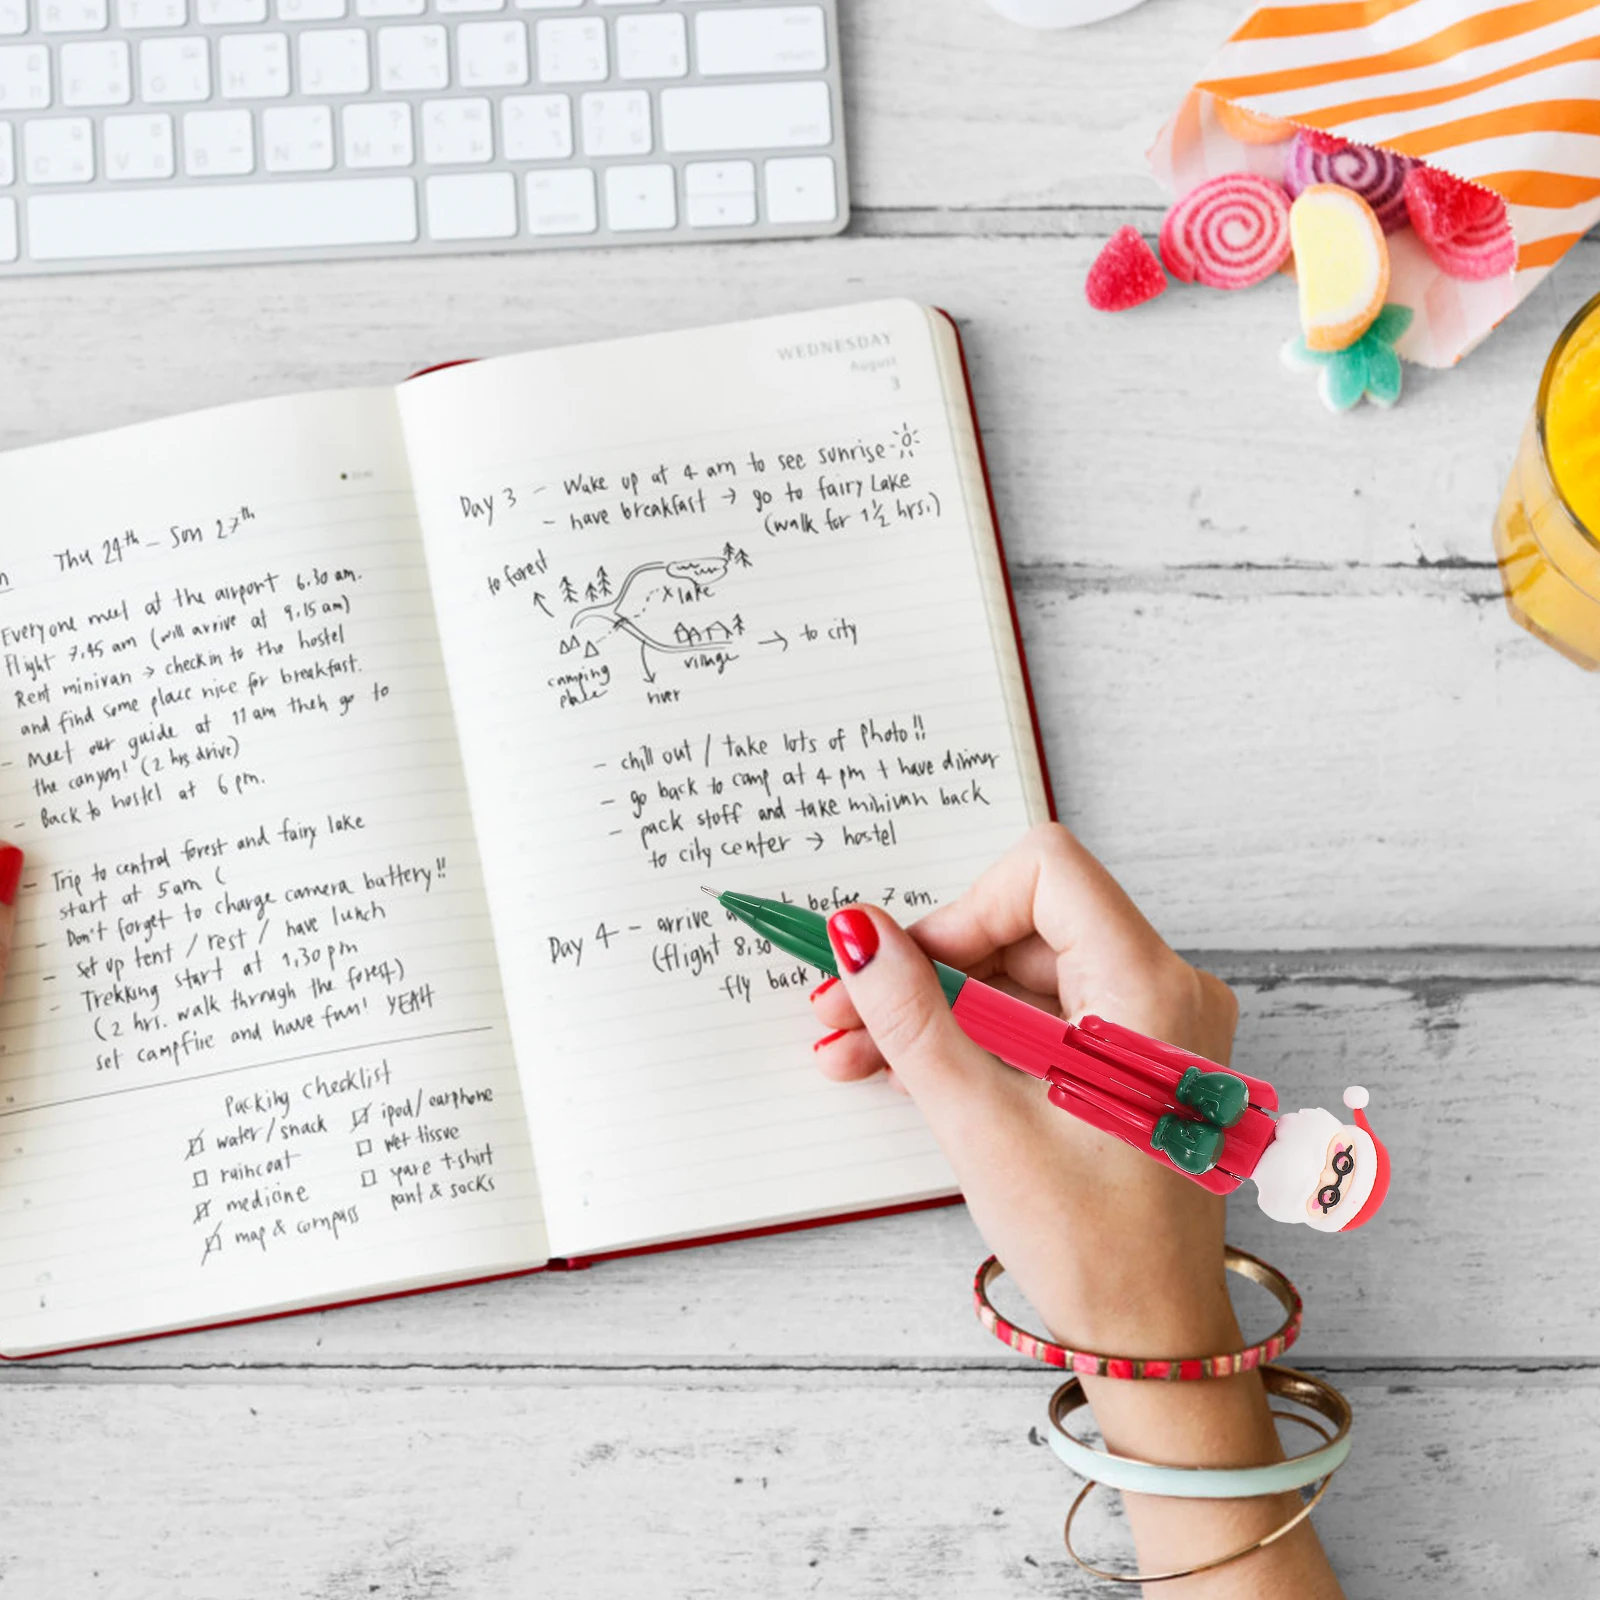 Thu 24th - Sun 27th
Everyone meet at the airport 6.30 am.
Flight 7.45 am (will arrive at 9.15 am)
Rent minivan → checkin to the hostel
and find some place nice for breakfast.
- Meet our guide at 11 am then go to
the canyon! (2 hrs drive)
- Back to hostel at 6 pm.
- Trip to central forest and fairy lake
start at 5am (
- Don't forget to charge camera battery!!
- set up tent / rest / have lunch
- Trekking start at 1.30 pm
(2 hrs. walk through the forest)
set campfire and have fun! YEAH
Packing checklist
water/snack
raincoat
medicine
map & compass
ipod/earphone
wet tissue
spare t-shirt
pant & socks
WEDNESDAY
August
3
Day 3 - Wake up at 4 am to see sunrise
- have breakfast → go to fairy Lake
(walk for 1½ hrs.)
to forest
x lake
camping
place
village
→ to city
river
- chill out / take lots of photo!!
- go back to camp at 4 pm + have dinner
- pack stuff and take minivan back
to city center → hostel
Day 4 - arrive before 7 am.
(flight 8.30
fly back